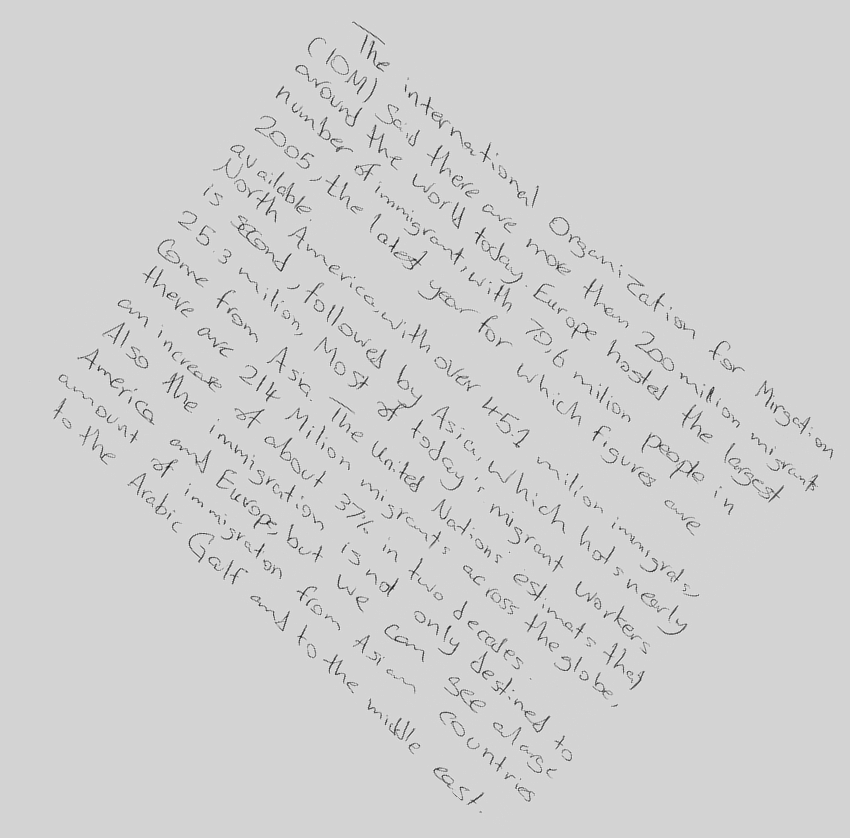 The international Organization for Mirgation
(IOM) Said there are more than 200 million migrants
around the world today. Europe hosted the largest
number of immigrant, with 70,6 milion people in
2005, the latest year for which figures are
available.
North America, with over 45.1 milion immigrats,
is second, followed by Asia, which hots nearly
25.3 milion, Most of today's migrant workers
Come from Asia. The United Nations estimats that
there are 214 Milion migrants across the globe,
an increase of about 37% in two decades.
Also the immigration is not only destined to
America and Europe, but we can see a large
amount of immigraton from Asian countries
to the Arabic Galf and to the middle east.